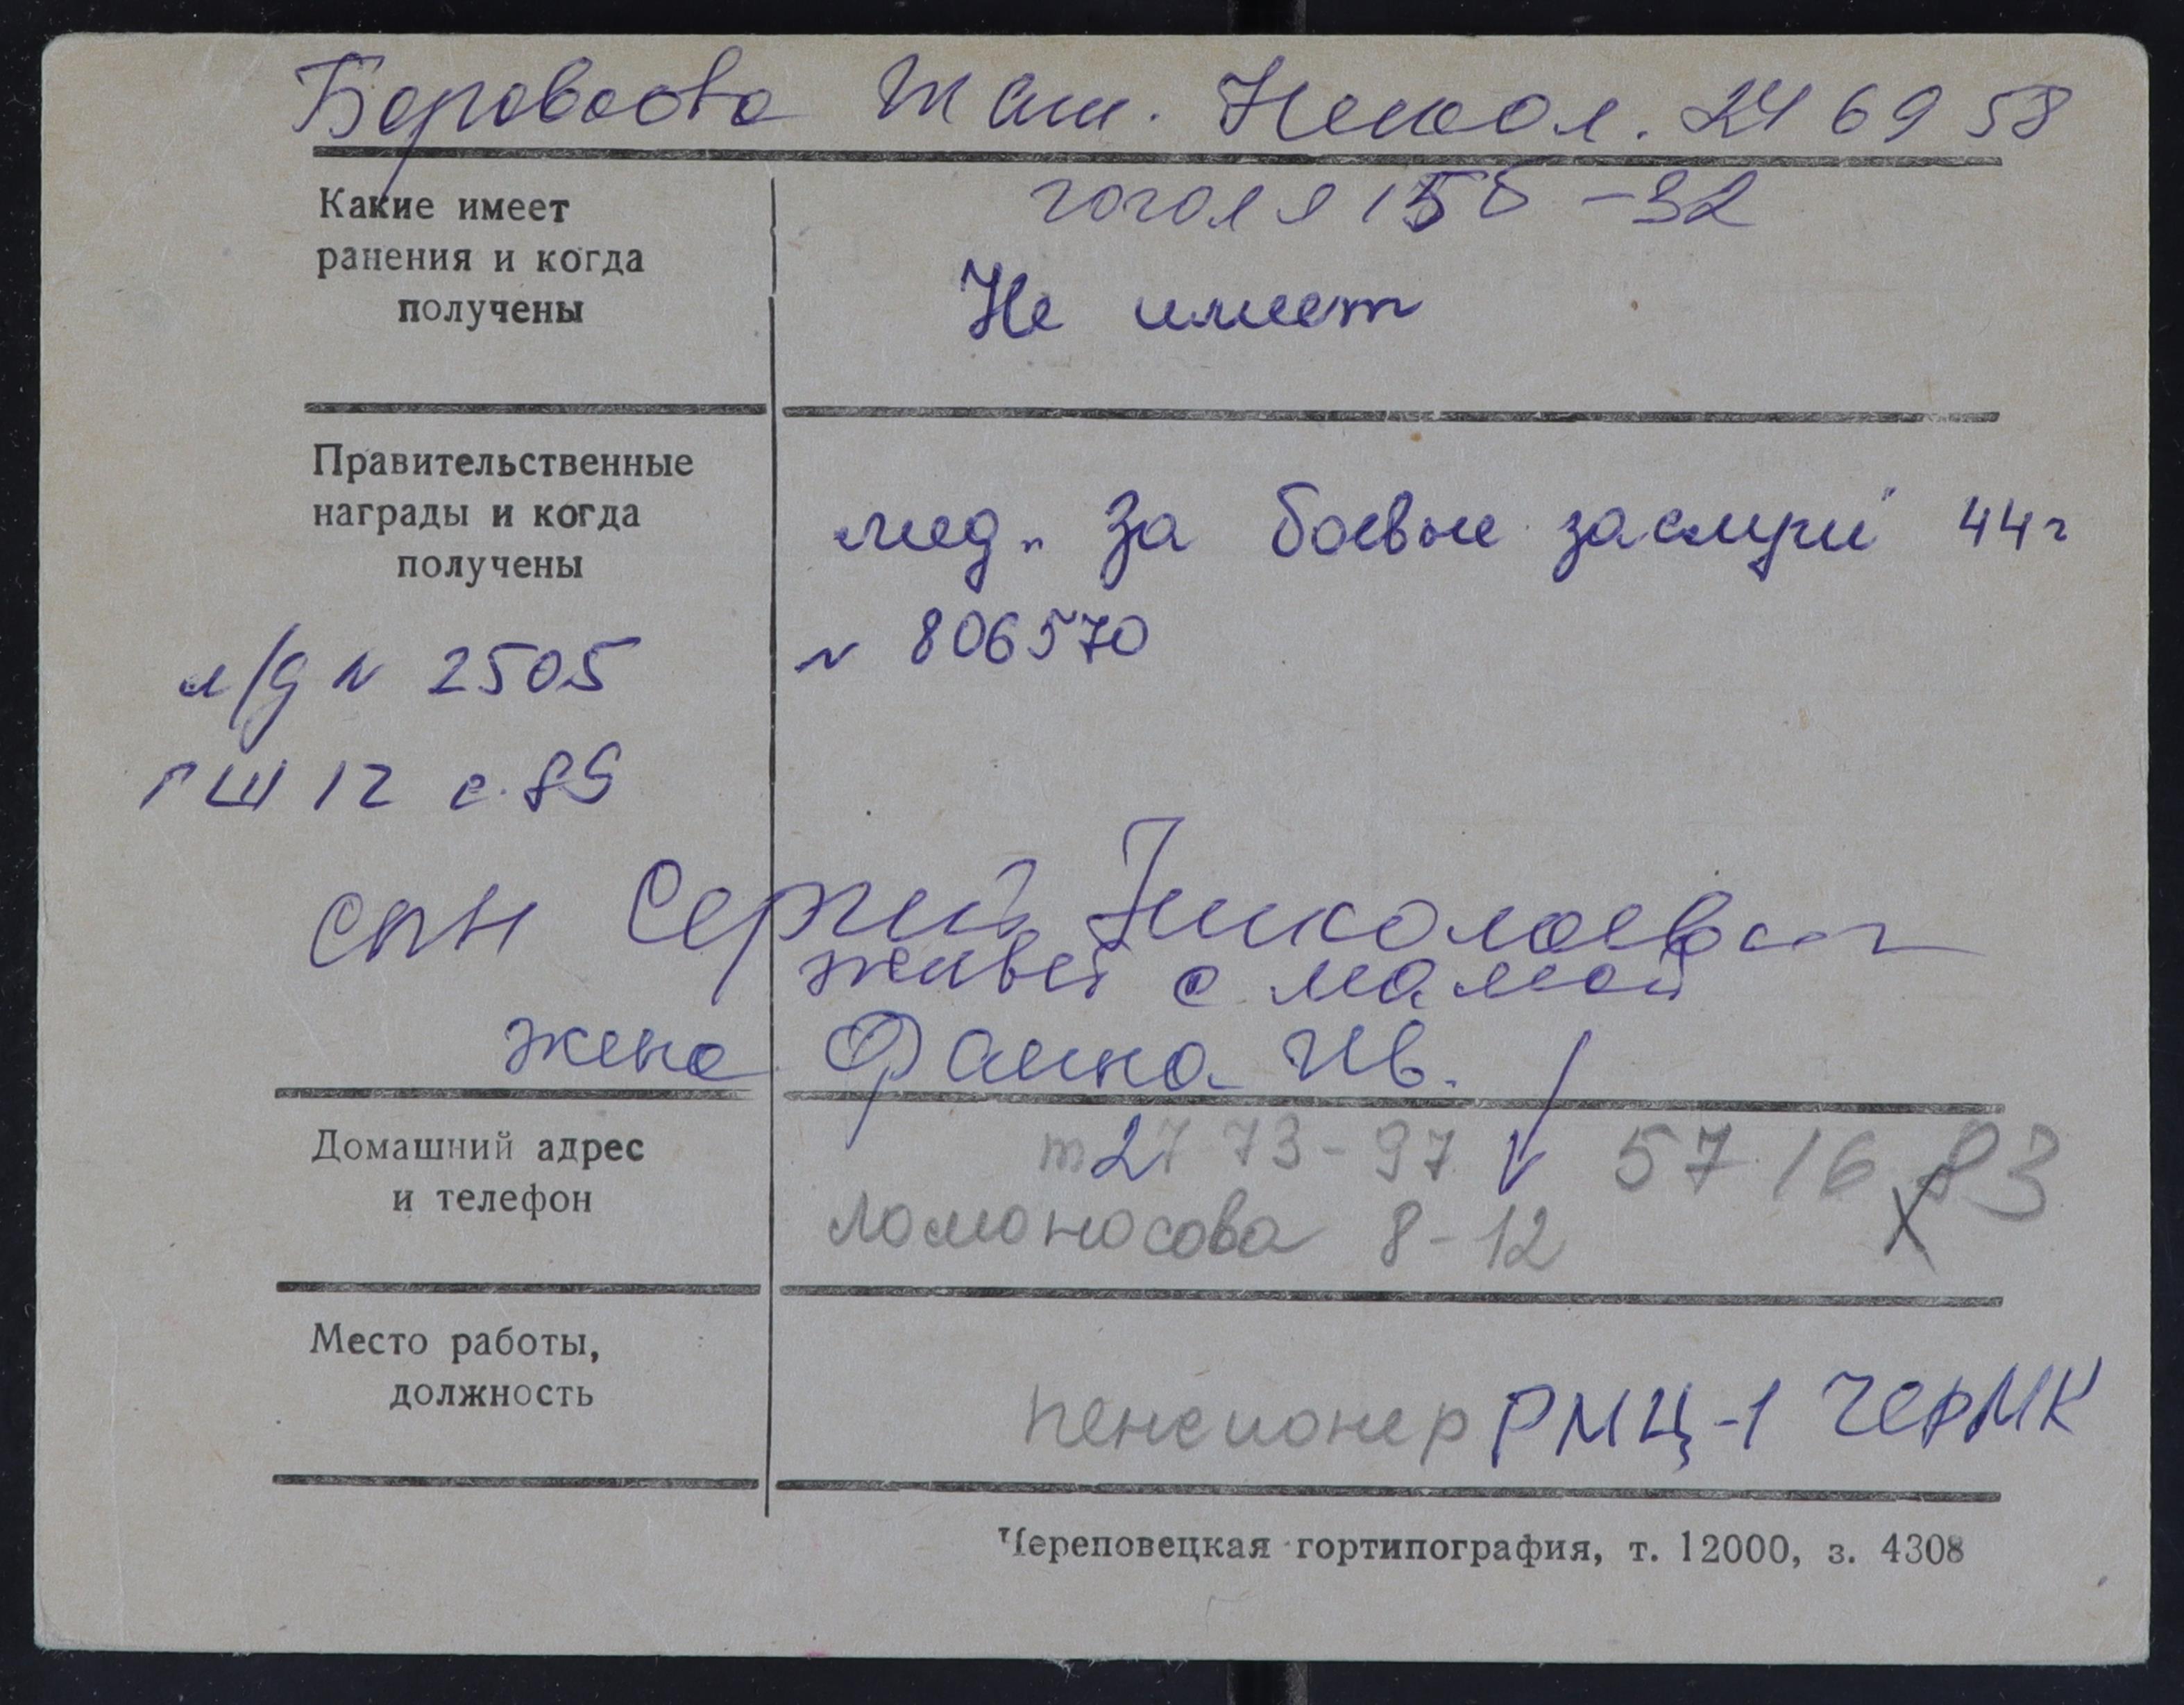 Тан. Никол. 24 69 58
Какие имеет
ранения и когда
получены
гоголя 15б - 32
Не имеет
Правительственные
награды и когда
получены
мед „За боевые заслуги" 44г
№ 806570
л/д № 2505
ГШ 12 с. 89
сын Сергей Николаевич
живет с мамой
жена Фаина Ив.
Домашний адрес
и телефон
т 27 73-97 57 16 83
Ломоносова 8-12
Место работы,
должность
пенсионер РМЦ-1 ЧЕРМК
Череповецкая гортипография, т. 12000, з. 4308